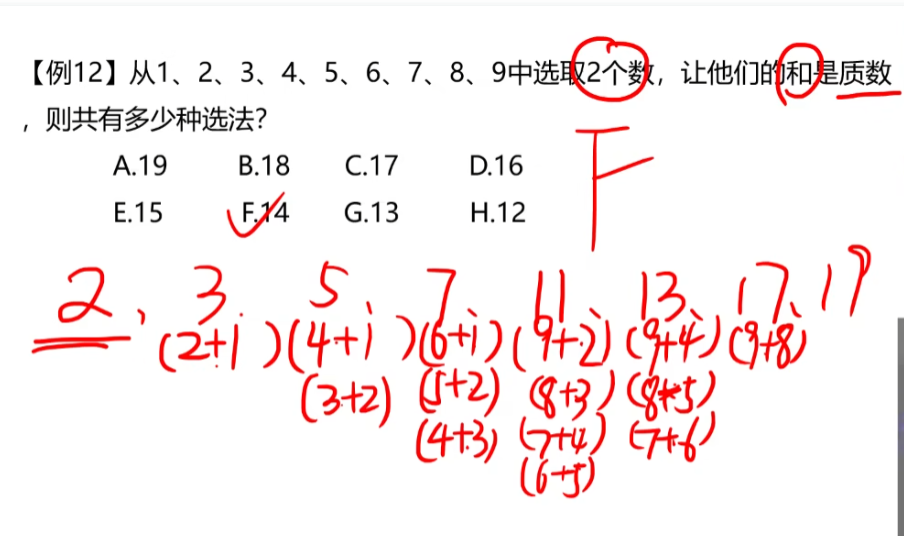 【例12】从1、2、3、4、5、6、7、8、9中选取2个数，让他们的和是质数
，则共有多少种选法？
A.19 B.18 C.17 D.16
E.15 F.14 G.13 H.12
F
2, 3 5 7 11 13 17, 19
(2+1) (4+1) (6+1) (9+2) (9+4) (9+8)
(3+2) (5+2) (8+3) (8+5)
(4+3) (7+4) (7+6)
(6+5)